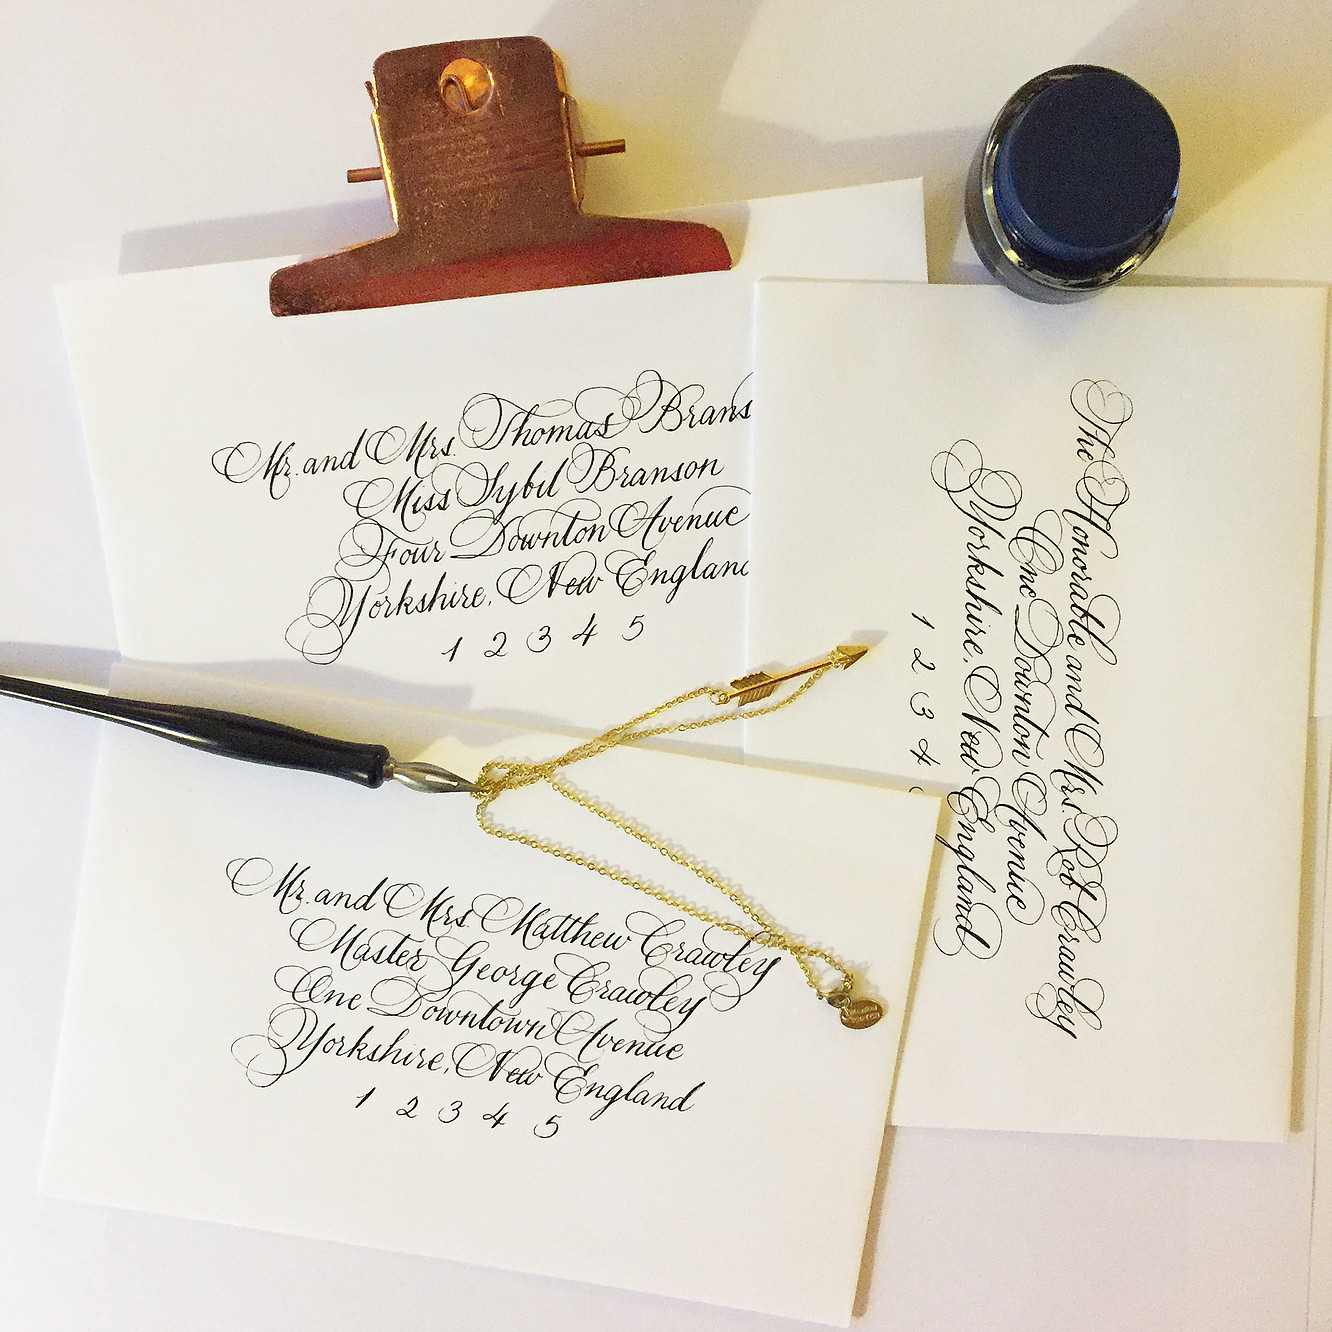 Mr. and Mrs. Thomas Brans
Miss Sybil Branson
Four Downton Avenue
Yorkshire, New England
1 2 3 4 5
The Honorable and Mrs. Rob Crawley
One Downton Avenue
Yorkshire, New England
1 2 3 4
Mr. and Mrs. Matthew Crawley
Master George Crawley
One Downtown Avenue
Yorkshire, New England
1 2 3 4 5